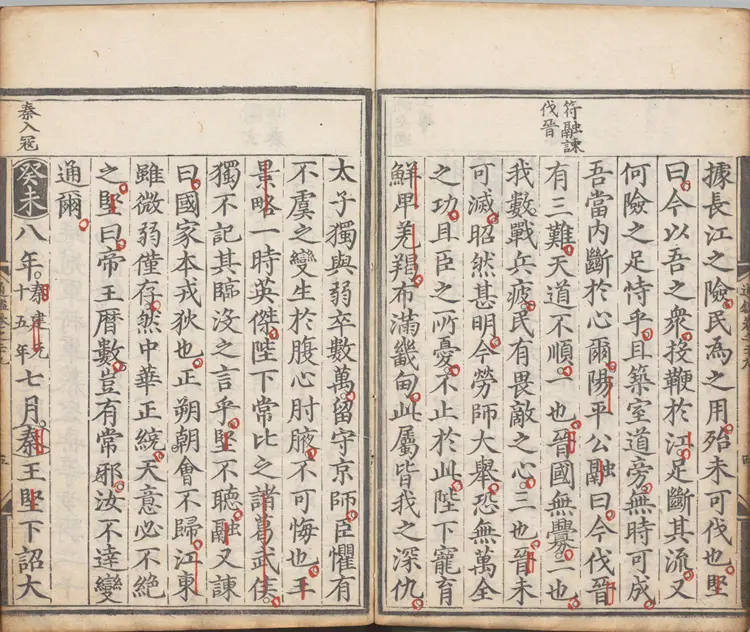 符融諫
伐晉
據長江之險民為之用殆未可伐也堅
曰今以吾之衆投鞭於江足斷其流又
何險之足恃乎且築室道旁無時可成
吾當内斷於心爾陽平公融曰今伐晉
有三難天道不順一也晉國無釁二也
我數戰兵疲民有畏敵之心三也晉未
可滅昭然甚明今勞師大舉恐無萬全
之功且臣之所憂不止於此陛下寵育
鮮卑羌羯布滿畿甸此屬皆我之深仇
太子獨與弱卒數萬留守京師臣懼有
不虞之變生於腹心肘腋不可悔也王
景略一時英傑陛下常比之諸葛武侯
獨不記其臨没之言乎堅不聽融又諫
曰國家本戎狄也正朔朝會不歸江東
雖微弱僅存然中華正統天意必不絶
之堅曰帝王曆數豈有常邪汝不達變
通爾
秦入冦
癸未八年秦建元十五年七月秦王堅下詔大